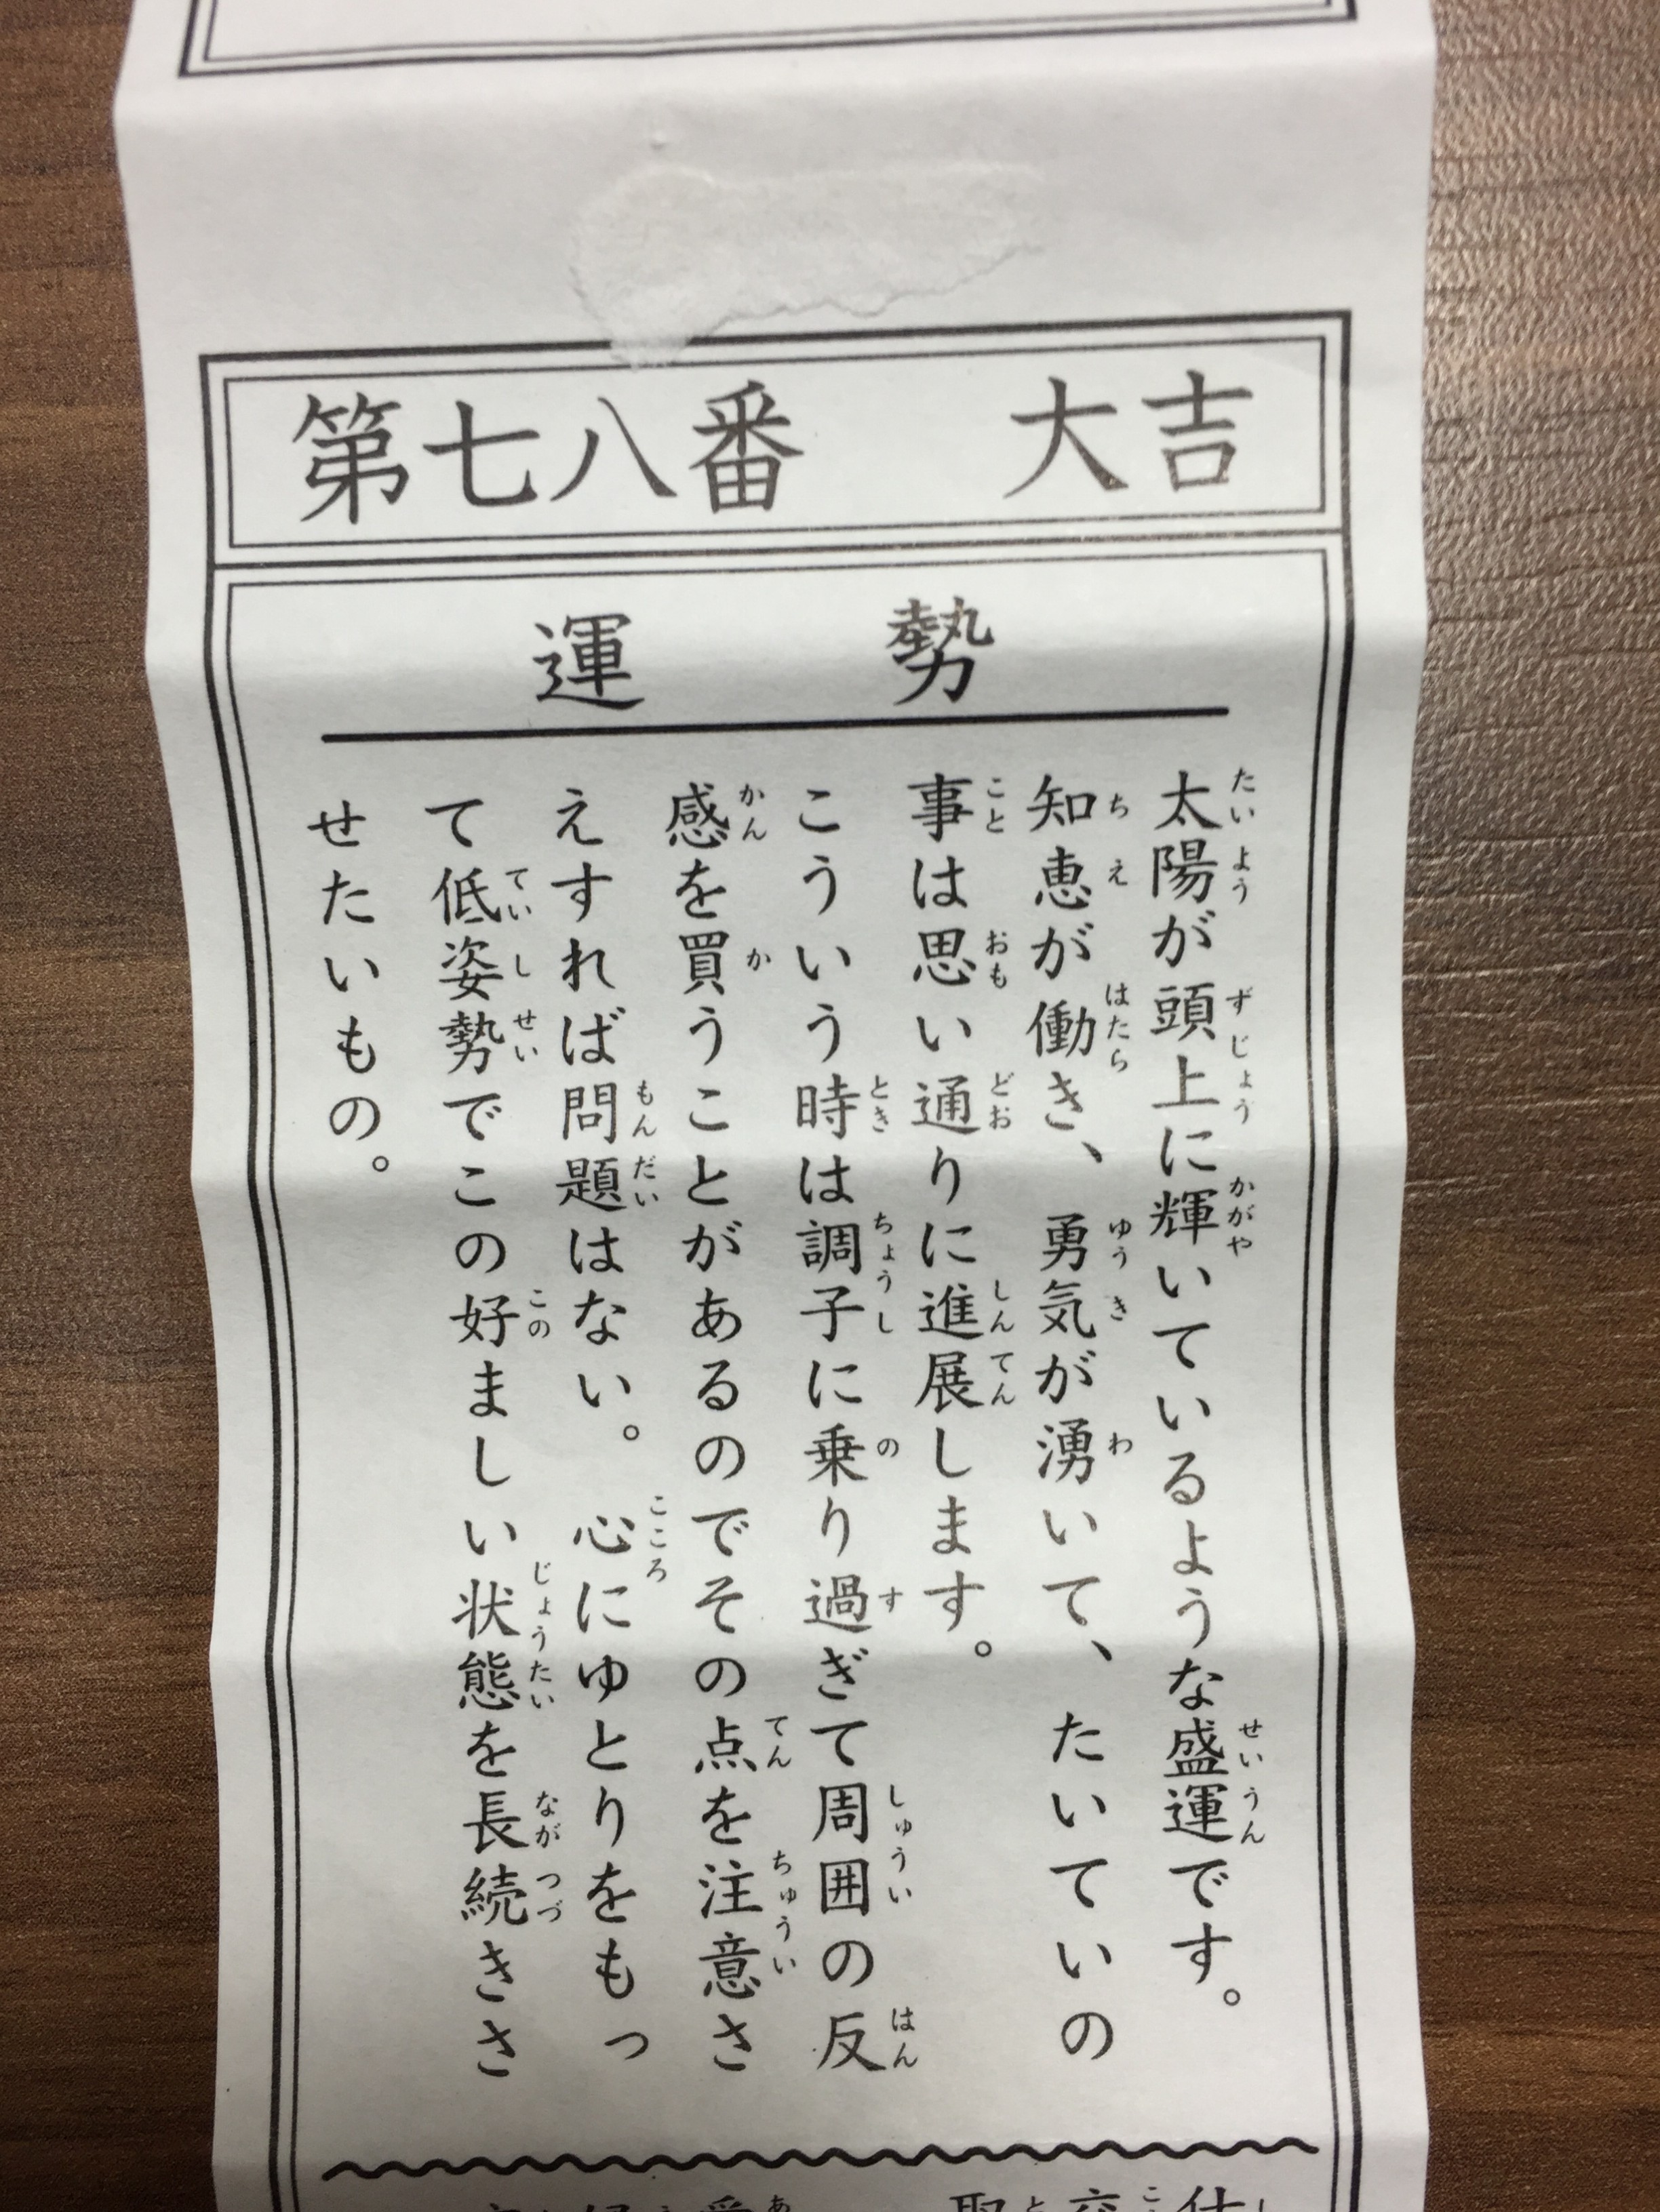 第七八番　大吉
運勢
太陽が頭上に輝いているような盛運です。
知恵が働き、勇気が湧いて、たいていの
事は思い通りに進展します。
こういう時は調子に乗り過ぎて周囲の反
感を買うことがあるのでその点を注意さ
えすれば問題はない。心にゆとりをもっ
て低姿勢でこの好ましい状態を長続きさ
せたいもの。